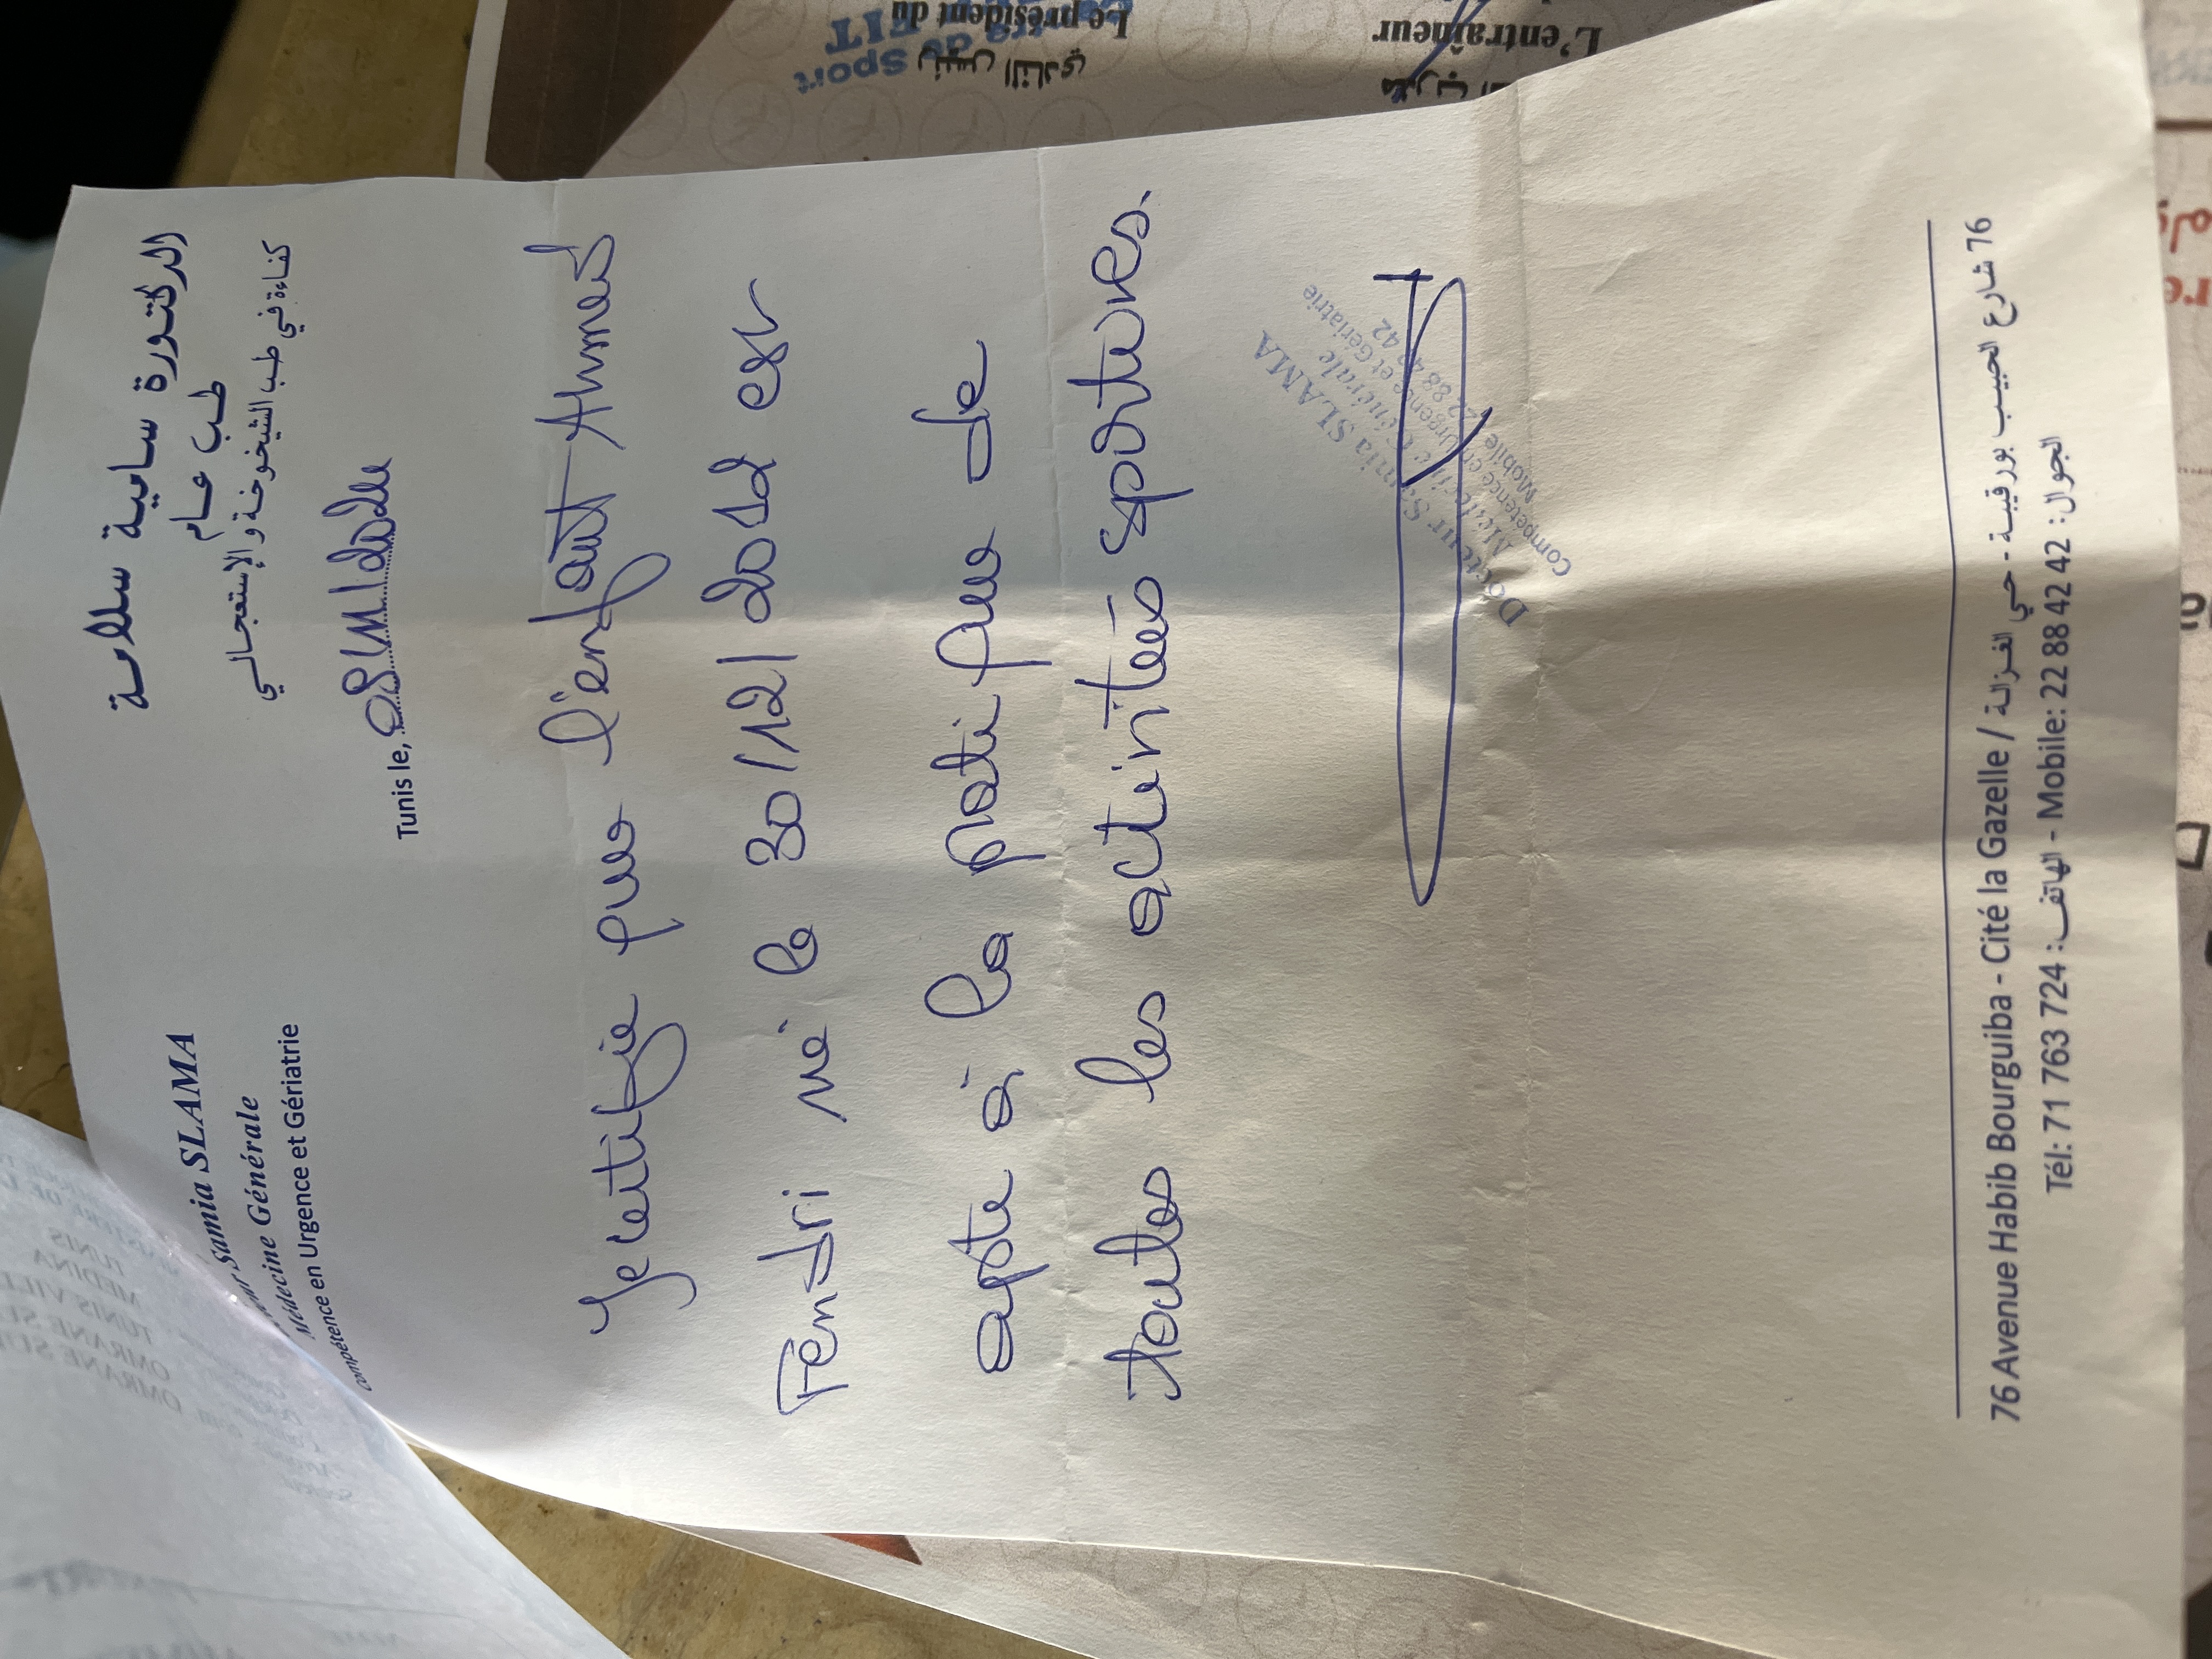 Samia SLAMA
Médecine Générale
compétence en Urgence et Gériatrie
الدكتورة سامية سلامة
طب عام
كفاءة في طب الشيخوخة و الإستعجالي
Tunis le,
Je certifie que l'enfant Ahmed
Fendri né le 30/12/2012 est
apte à la pratique de
toutes les activités sportives.
Docteur Samia SLAMA
Médecine Générale
Compétence en Urgence et Gériatrie
Mobile 22 88 42 42
76 Avenue Habib Bourguiba - Cité la Gazelle / 76 شارع الحبيب بورقيبة - حي الغزالة
Tél: 71 763 724 :الهاتف - Mobile: 22 88 42 42 :الجوال
L'entraîneur
Le président du
رئيس النادي
Sport
FIT
TUNIS
MEDINA